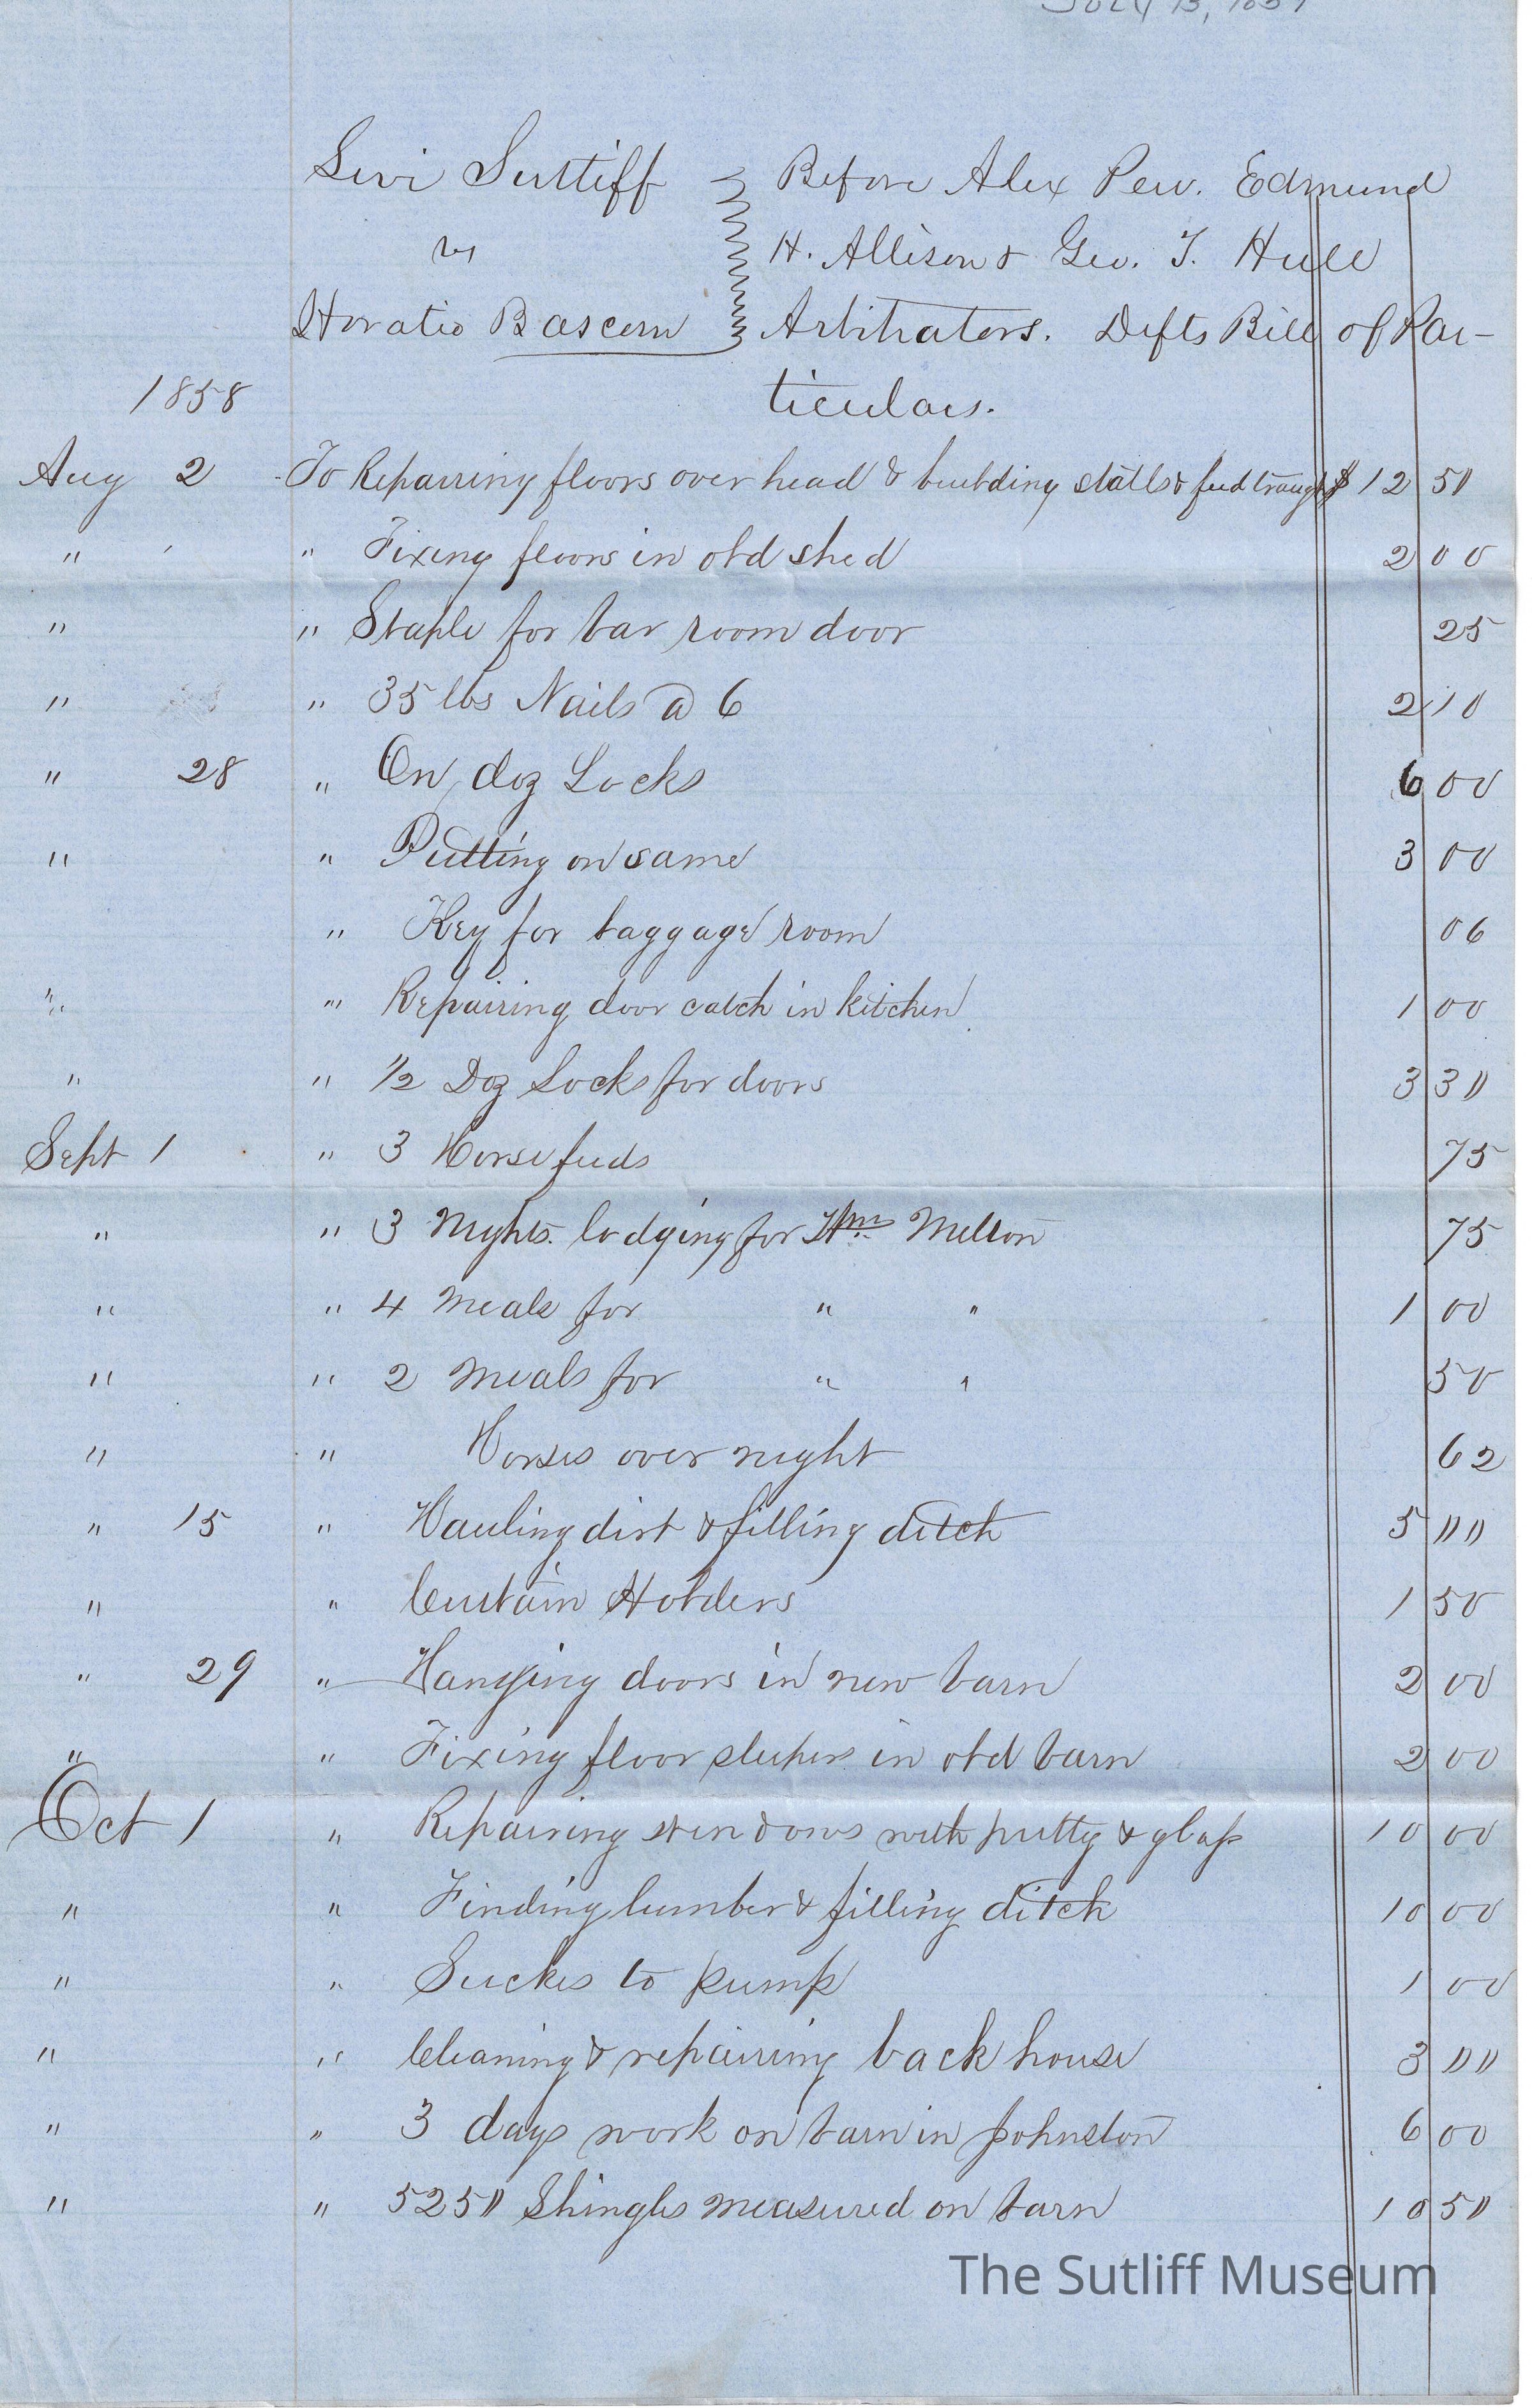 JULY 13, 1859
Levi Sutliff Before Alex Pew. Edmund
vs H. Allison & Geo. T. Hull
Horatio Bascom Arbitrators. Defts Bill of Par-
1858 ticulars.
Aug 2 To Repairing floors over head & building stalls & feed trough $ 12 50
" " Fixing floors in old shed 2 00
" " Staple for bar room door 25
" " 35 lbs Nails @ 6 2 10
" 28 " On doz Locks 6 00
" " Putting on same 3 00
" Key for baggage room 06
" " Repairing door catch in kitchen 1 00
" " 1/2 Doz Locks for doors 3 30
Sept 1 " 3 Horse feeds 75
" " 3 Nights lodging for Wm Melton 75
" " 4 Meals for " " 1 00
" " 2 Meals for " " 50
" " Horses over night 62
" 15 " Hauling dirt & filling ditch 5 00
" " Curtain Holders 1 50
" 29 " Hanging doors in new barn 2 00
" " Fixing floor sleepers in old barn 2 00
Oct 1 " Repairing windows with putty & glass 10 00
" " Finding lumber & filling ditch 10 00
" " Sucker to pump 1 00
" " Cleaning & repairing back house 3 00
" " 3 days work on barn in Johnston 6 00
" " 5250 Shingles measured on barn 10 50
The Sutliff Museum